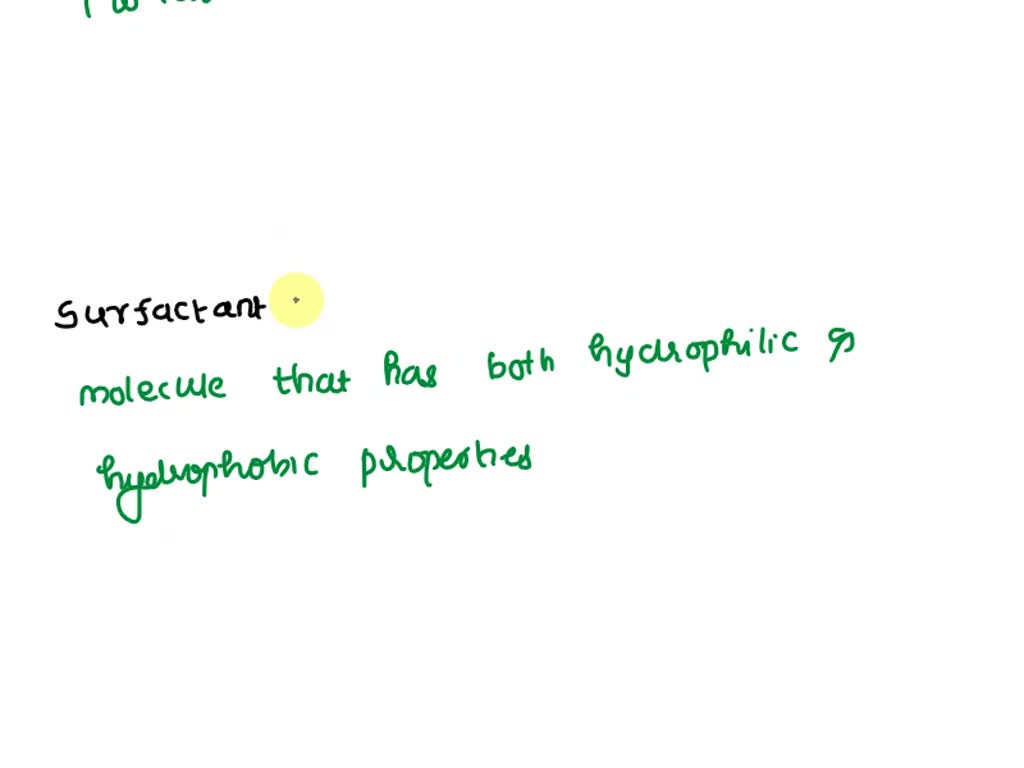 Surfactant
molecule that has both hydrophilic &
hydrophobic properties